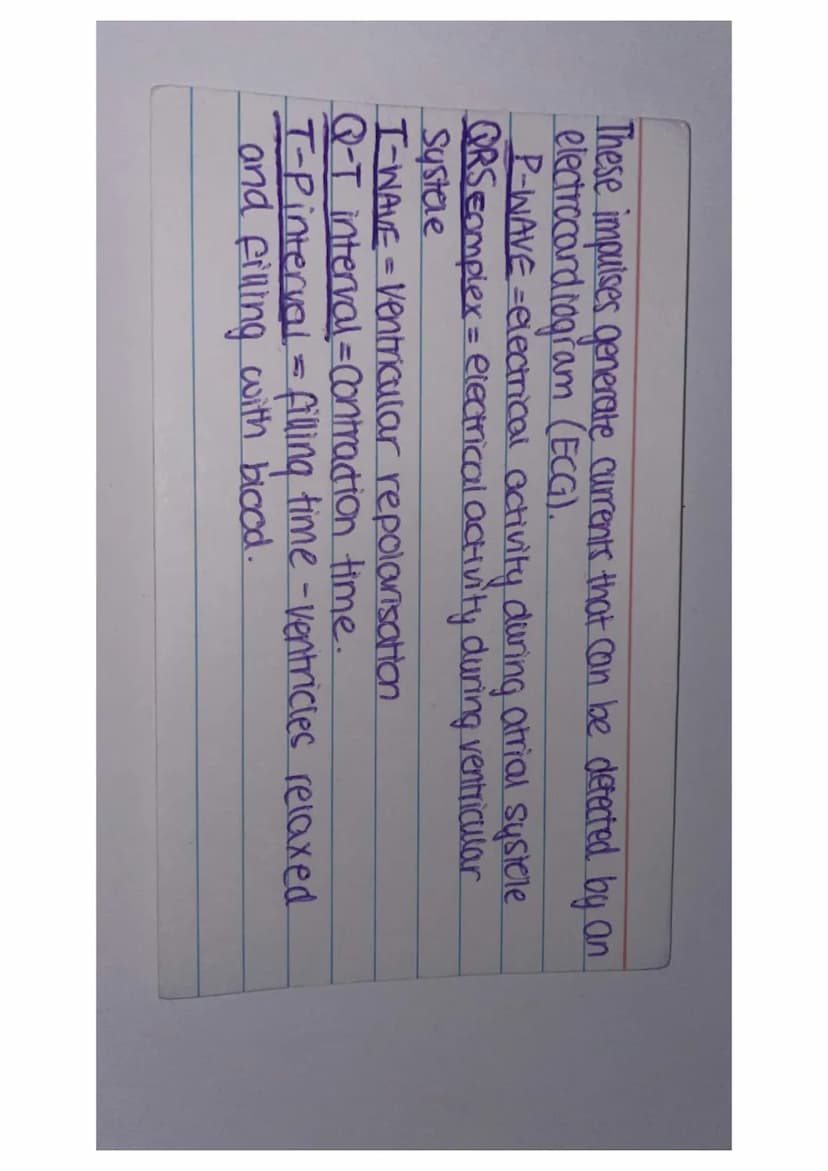 These impulses generate currents that can be detected by an
electrocardiogram (ECG).
P-WAVE = electrical activity during atrial systole
QRS complex = electrical activity during ventricular
systole
T-WAVE = ventricular repolarisation
Q-T interval = contraction time.
T-P interval = filling time - ventricles relaxed
and filling with blood.